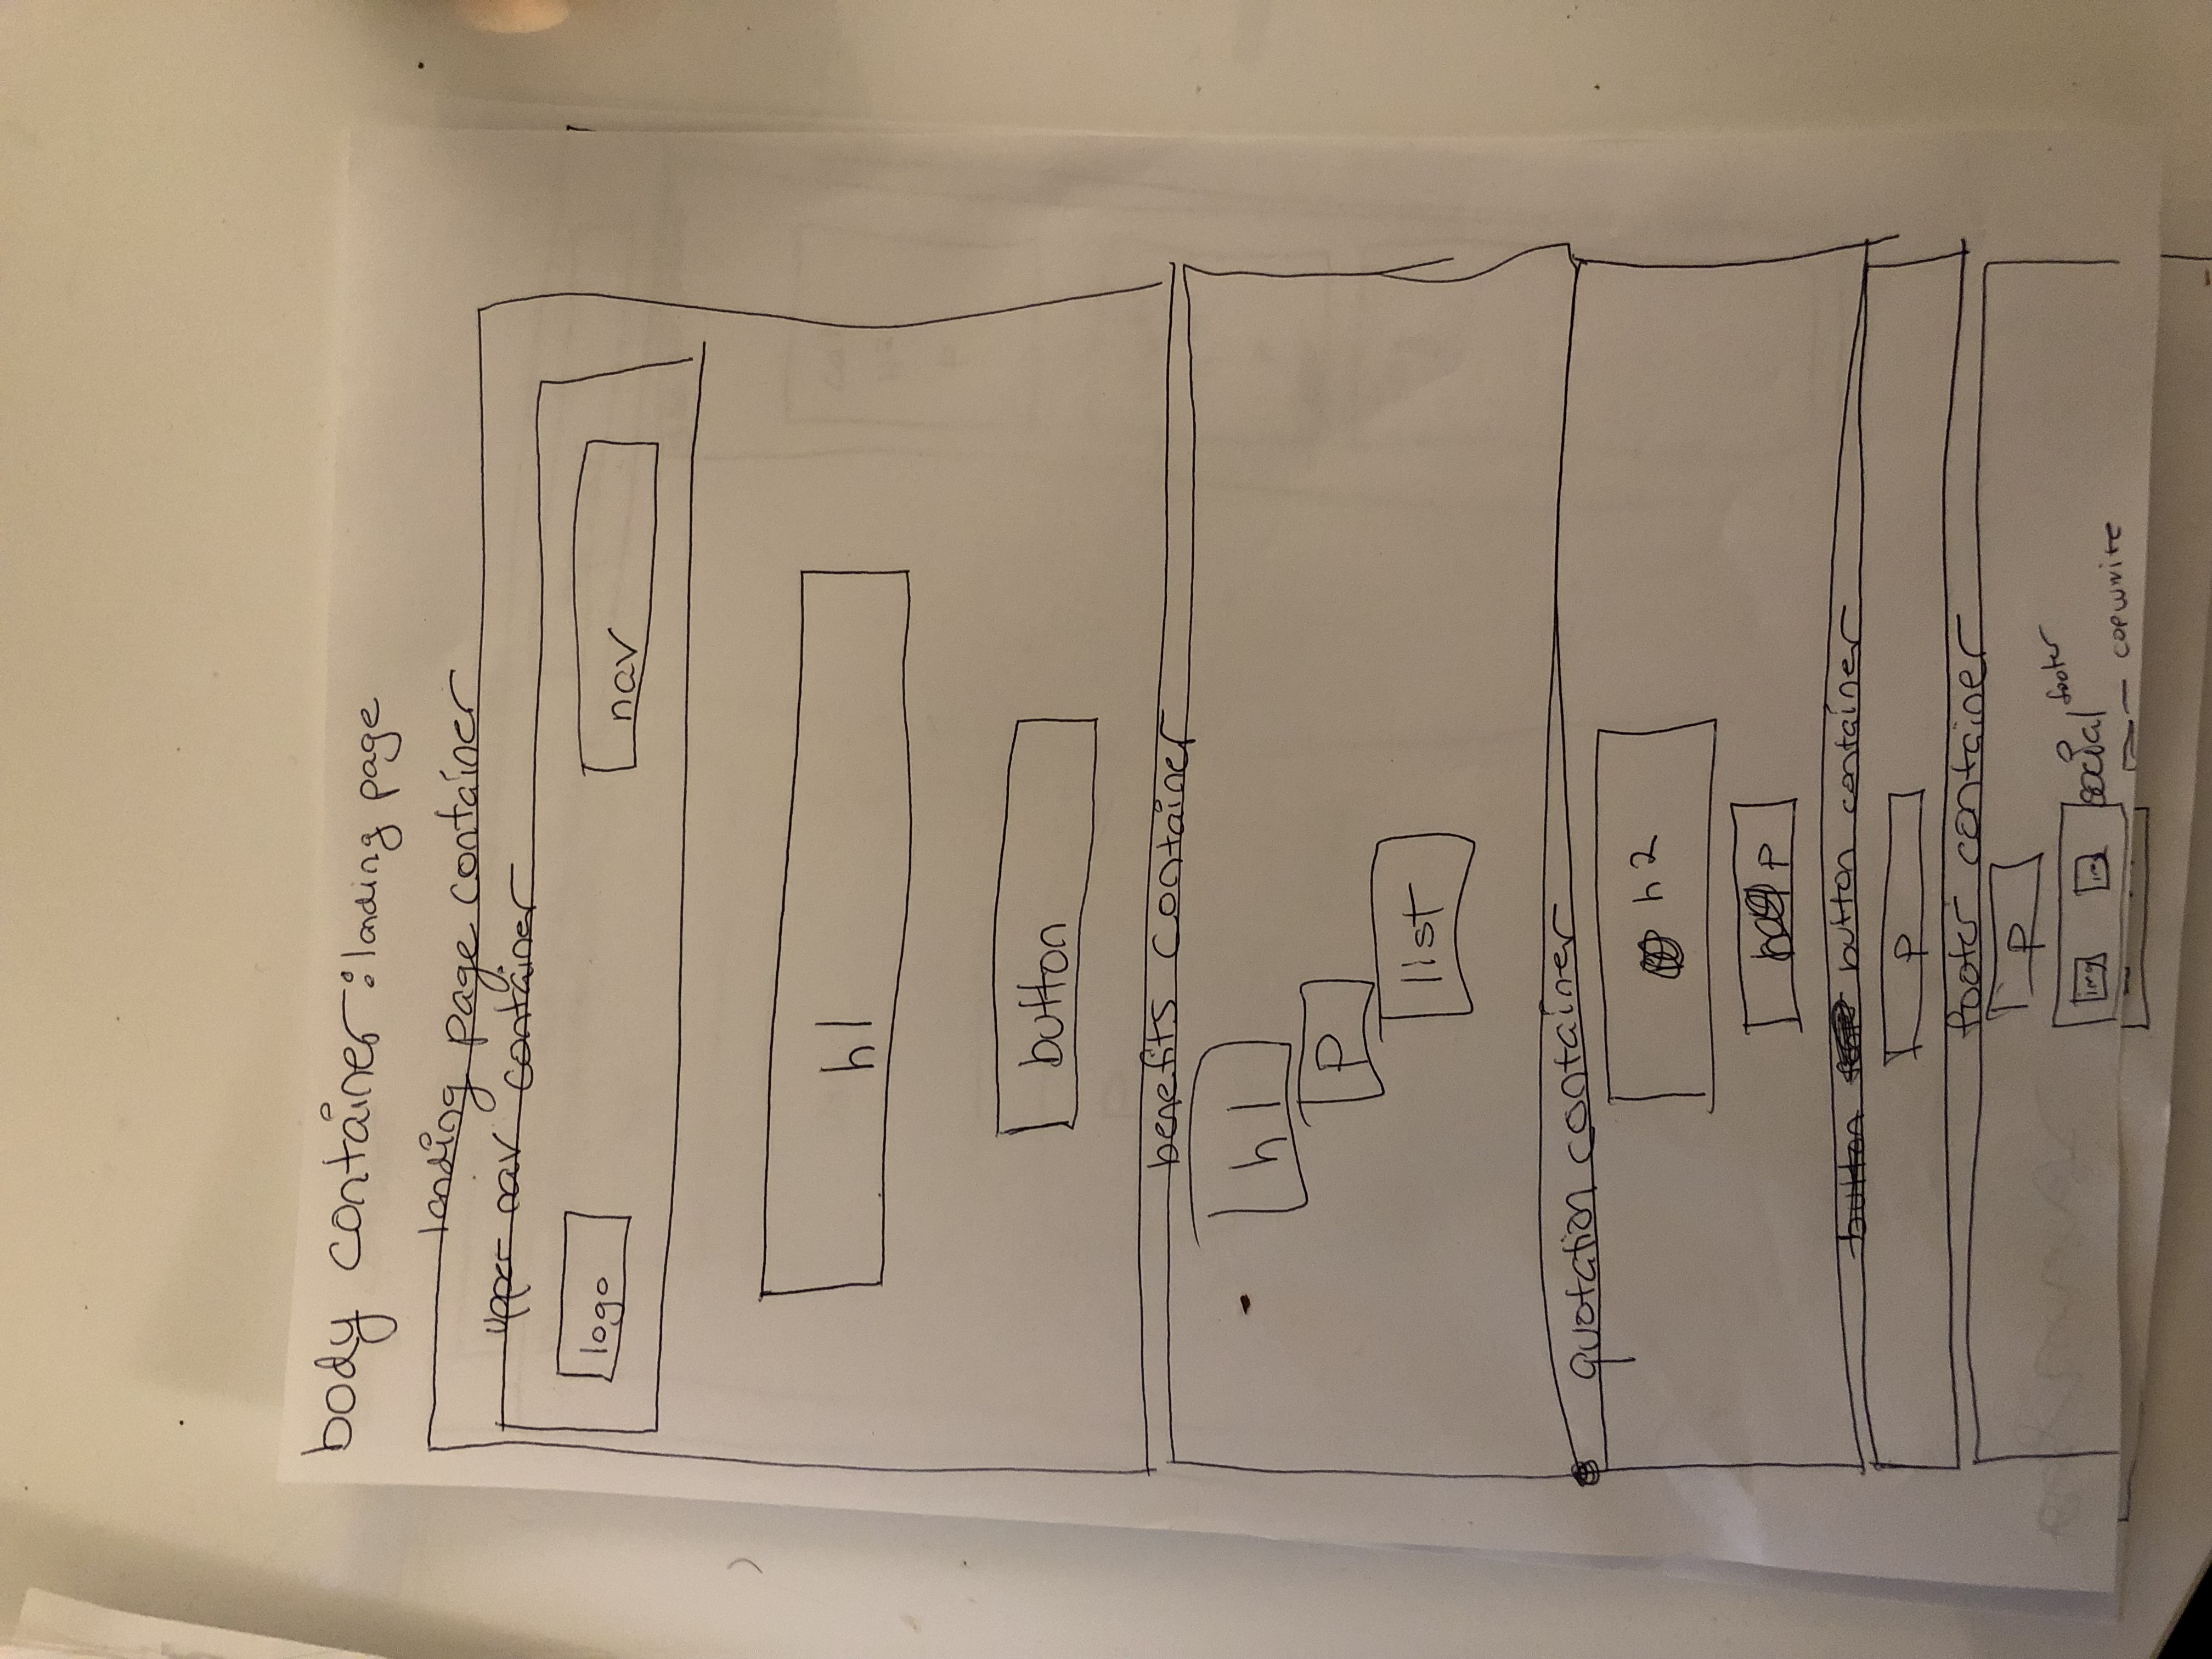 body container: landing page
landing page container
upper nav container
logo
nav
h1
button
benefits container
h1
p
list
quotation container
h2
p
button button container
p
footer container
p
img img social footer
copwrite